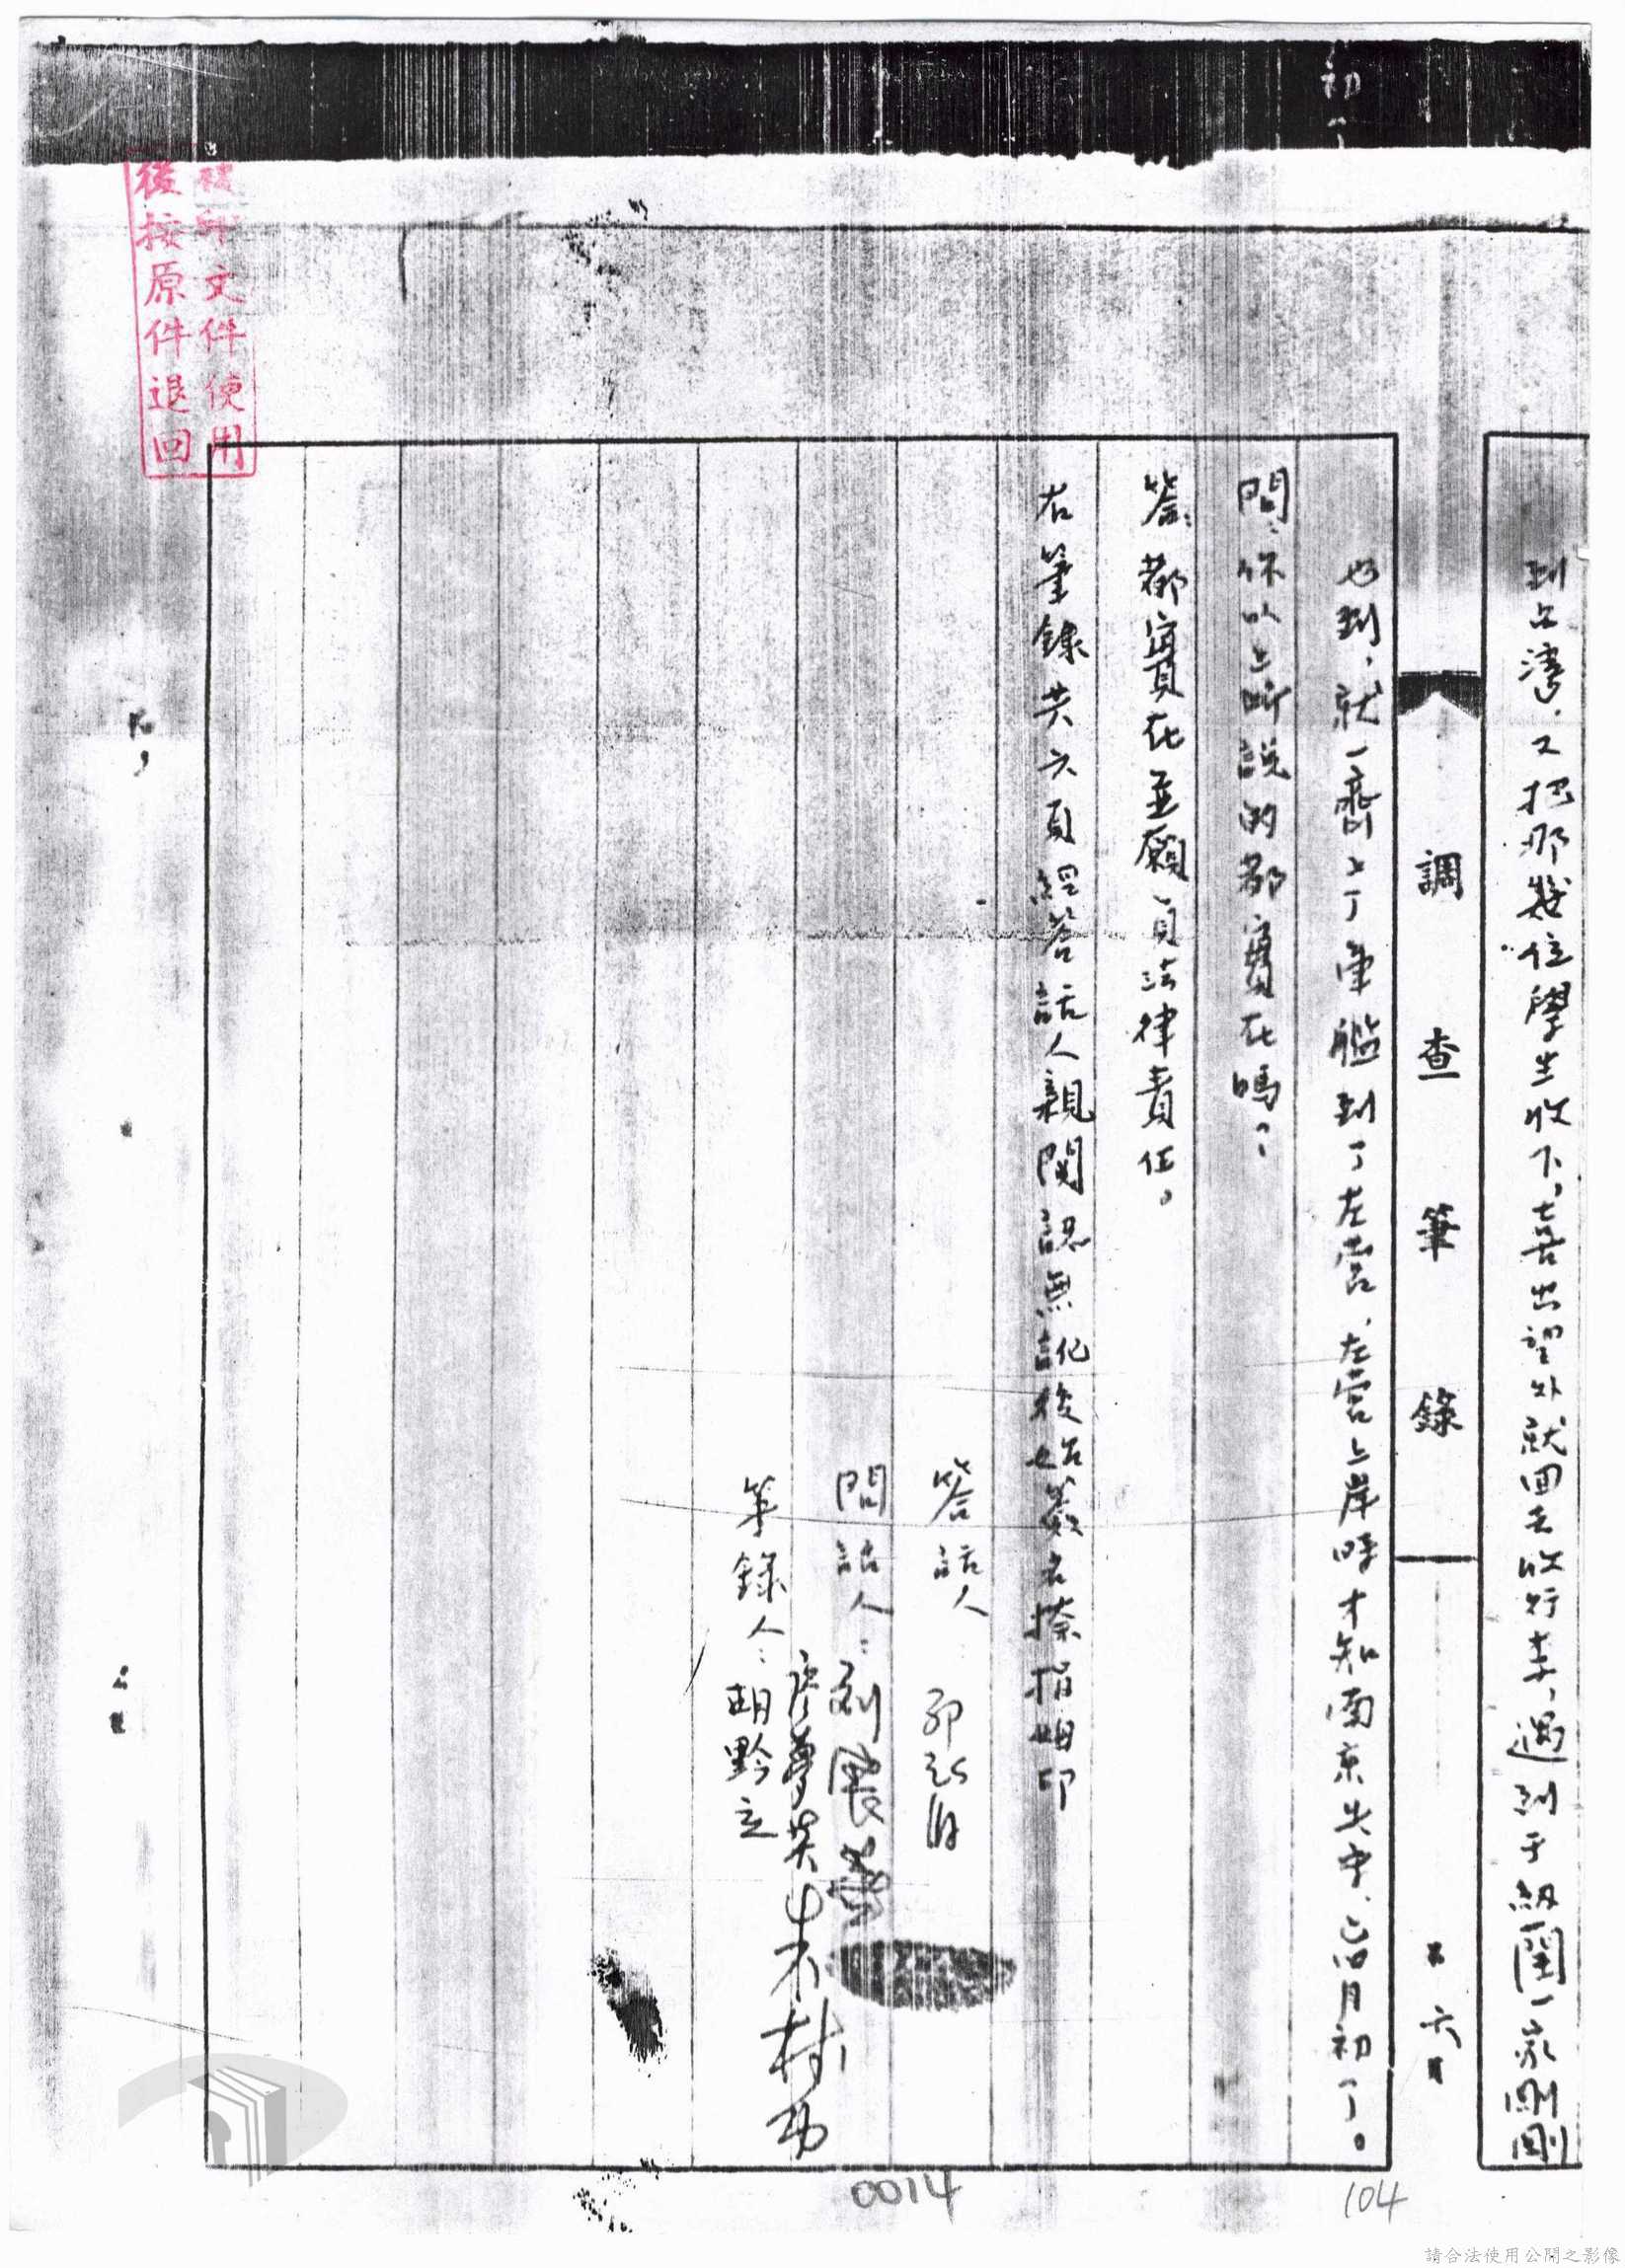 到台灣，又把那幾位學生收下，喜出望外就回去收行李，遇到于紹閣一家剛剛
調查筆錄
第六頁
也到，就一齊上了軍艦到了左營，左營上岸時才知南京失守，已四月初了。
問：你以上所說的都實在嗎？
答：都實在並願負法律責任。
右筆錄共六頁經答話人親閱認無訛後始簽名捺指姆印
答話人
問話人：劉展華
朱村功
筆錄人：胡黔立
後按原件退回
文件使用
初了
0014
104
請合法使用公開之影像